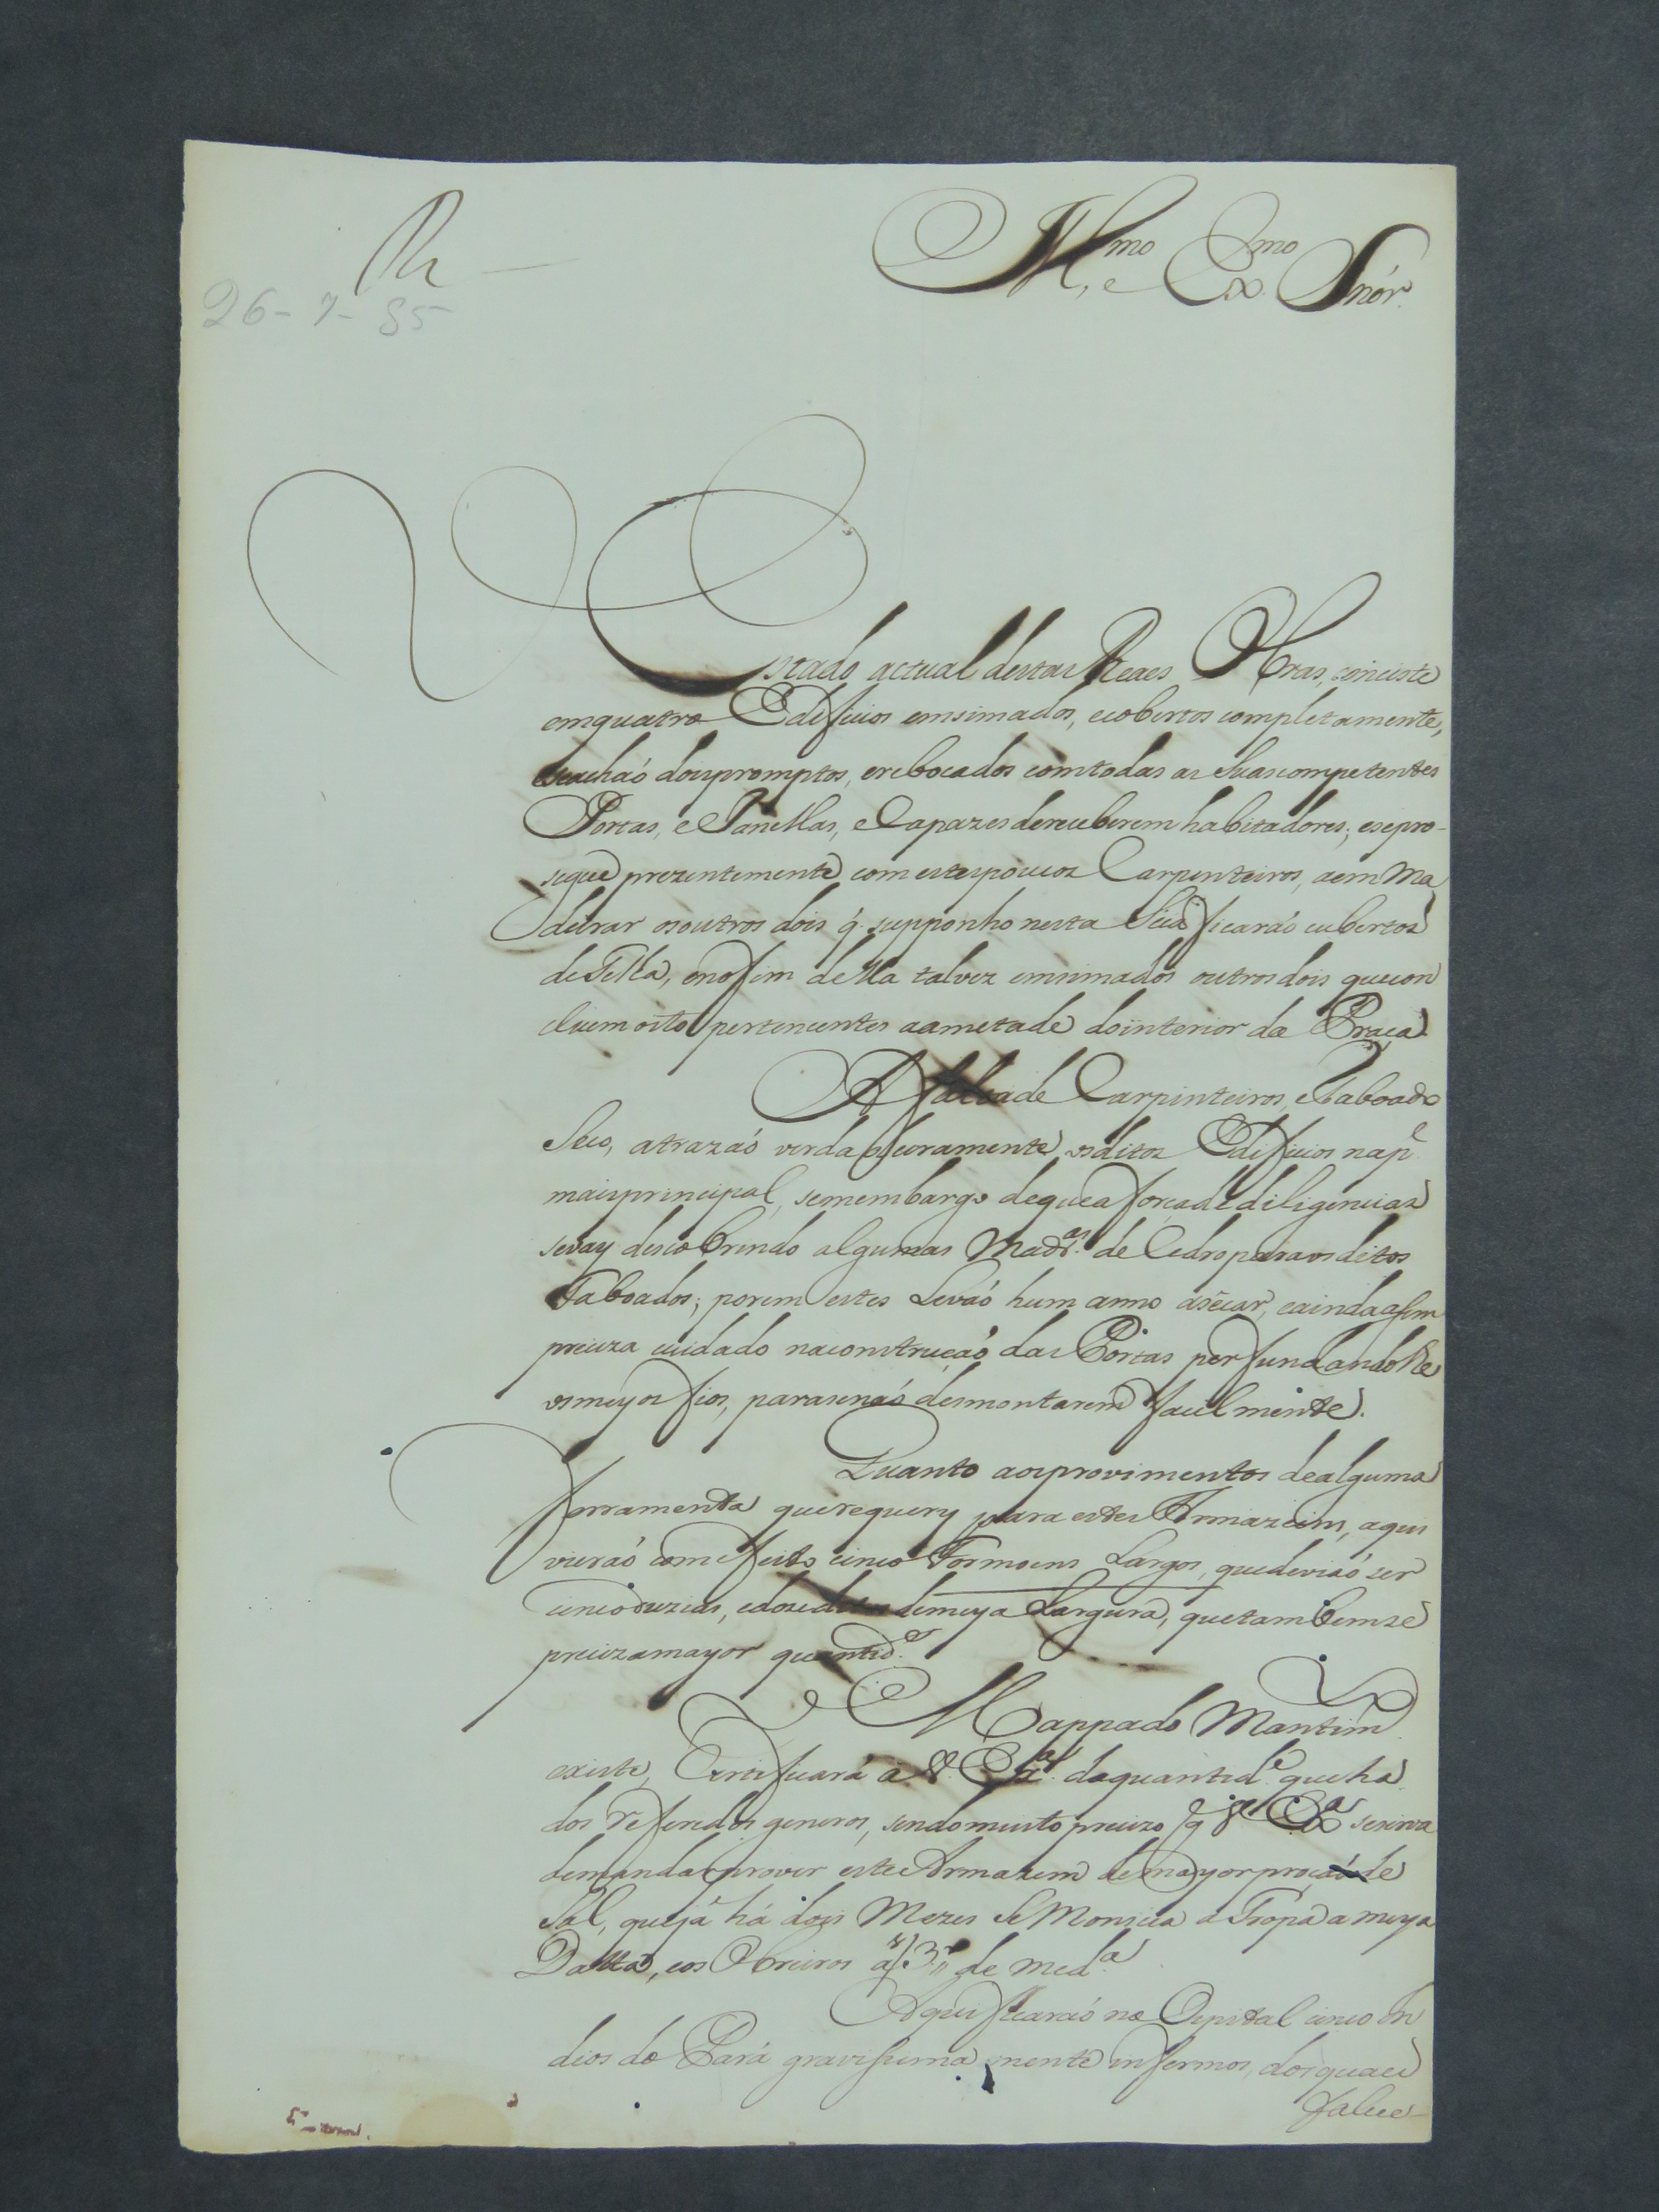 Ill.mo, e Ex.mo Snór.
R
26-7-85
Estado actual destas Reaes Obras, conciste
emquatro Edificios emsimados, ecobertos completamente,
seachaó doispromptos, erebocados comtodas as Suascompetentes
Portas, e Janellas, e Capazes dereceberem habitadores; esepro-
segue prezentemente com estespoucos Carpenteiros, aem Ma
deirar osoutros dois q̃ supponho nesta Sua ficaráo cubertos
de Telha, enofim della talvez emsimados outros dois quecon
cluemoito pertencentes aametade dointerior da Praça.
A faltade Carpinteiros, eTaboado
Seco, atrazaó verdadeiramente osditos Edificios nap.e
maisprincipal, semembargo dequea forçade diligencias
sevay descobrindo algumas Mad.as de Cedro paraos ditos
Taboados; porem estes Leváo hum anno asecar, eaindaassim
preciza cuidado naconstruçaó das Portas perfundandolhe
osmeyos fios, parasenaó desmontarem facilmente.
Quanto aosprovimentos dealguma
ferramenta querequery para estes Armazeins, aqui
vieraó comefeito cinco Formoens Largos, quedeviaó ser
cincoduzias, edozeditos demeya Largura, quetambemse
precizamayor quantid.e
O Mappado Mantim.
existe, Certeficará a V. Ex.a daquantid.e queha
dos referidos generos, sendomuito precizo q̃ V. Ex.a sesirva
demandar prover este Armazem demayorporçaó de
Sal, quejá há dois Mezes se Moniciа a Tropa a meya
Data, eos Obreiros a 3.a de med.a
Aqui ficaraó no Ospital cinco In
dios do Pará gravissima mente infermos, dosquaes
Falue-